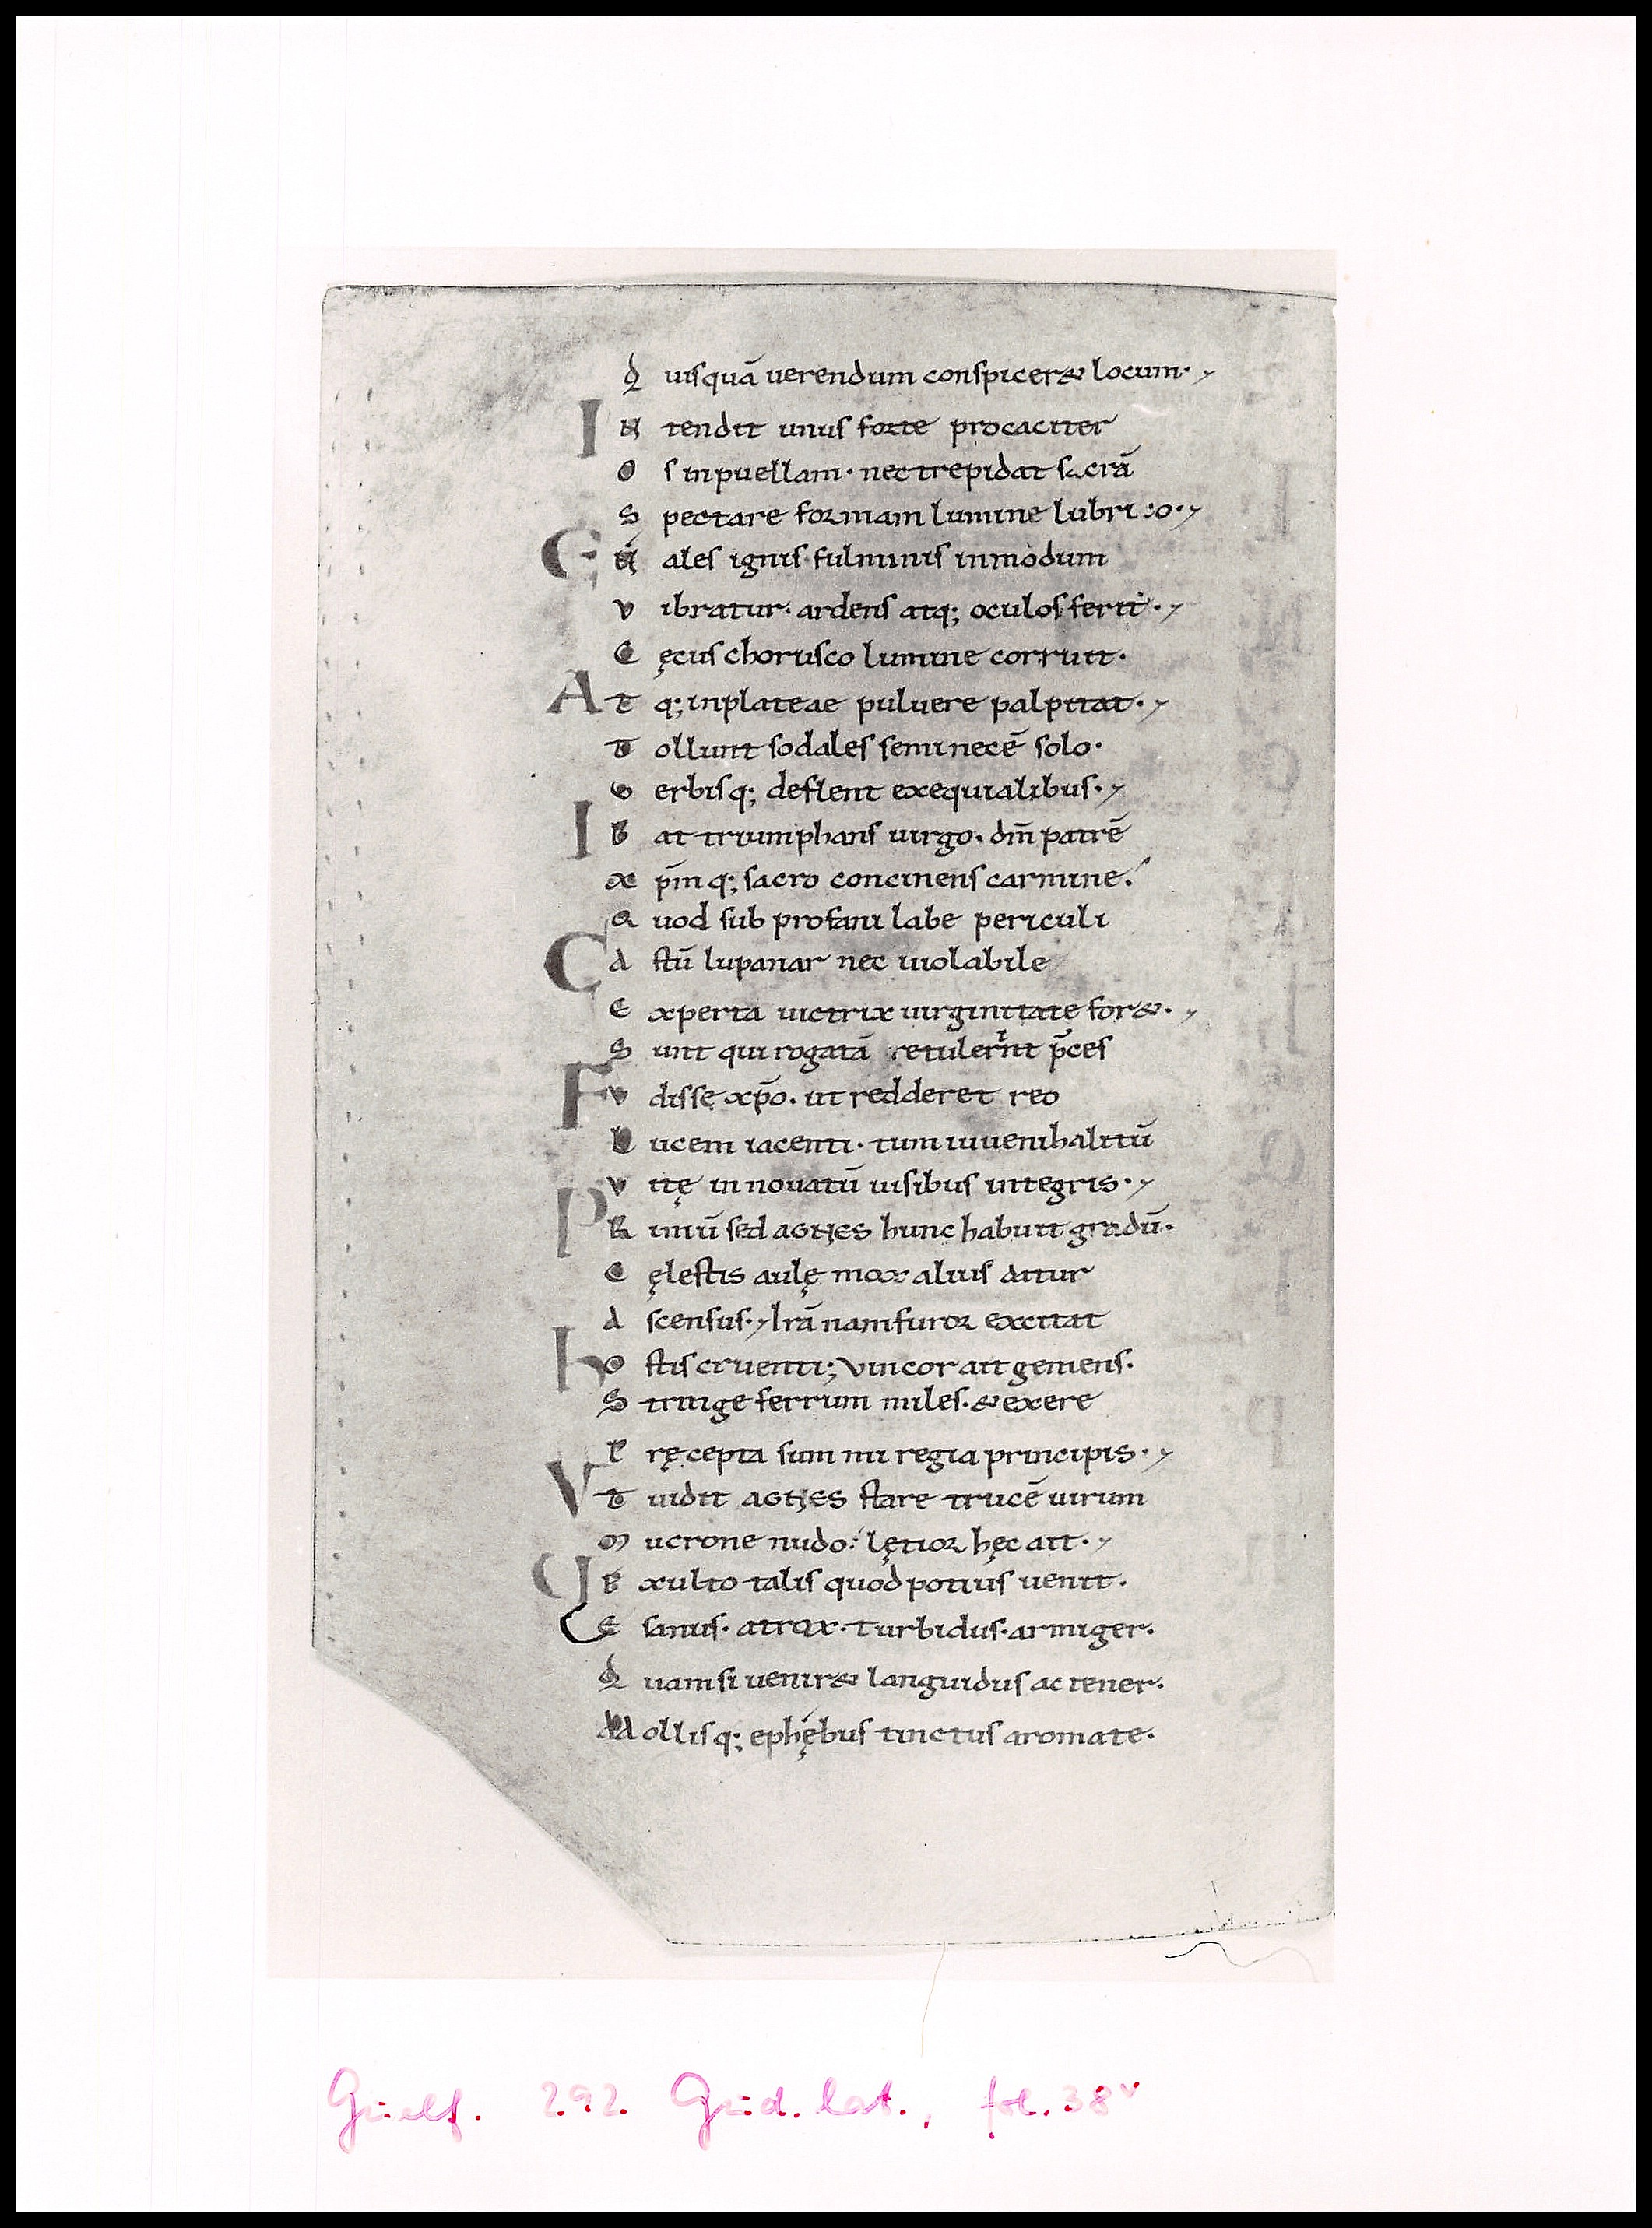 Q uisquā uerendum conspiceret& locum·
IN tendit unus forte procaciter
O s inpuellam· nec trepidat sacrā
S pectare formam lumine lubrico·
EN ales ignis fulminis inmodum
V ibratur· ardens atq; oculos ferit·
C ęcus chorusco lumine corruit·
AT q; inplateae puluere palpitat·
T ollunt sodales seminecē solo·
V erbisq; deflent exequialibus·
IB at triumphans uirgo· dm̄ patrē
X p̄m q; sacro concinens carmine·
Q uod sub profani labe periculi
CA stū lupanar nec uiolabile
E xperta uictrix uirginitate for&·
S unt qui rogatā retulerint p̄ces
FV disse xp̄o· ut redderet reo
L ucem iacenti· tum iuuenihalitū
V itę innouatū uisibus integris·
PR imū sed AGNES hunc habuit gradū·
C ęlestis aulę mox alius datur
A scensus· Irā nam furor excitat
HO stis cruenti; Vincor ait gemens·
S tringe ferrum miles· & exere
P ręcepta summi regia principis·
VT uidit AGNES stare trucē uirum
M ucrone nudo· lętior hęc ait·
E xulto talis quod potius uenit·
VE sanus· atrox· turbidus· armiger·
Q uam si uenir& languidus ac tener·
M ollisq; ephębus tinctus aromate·
Guelf. 292. Gud. lat., fol. 38v